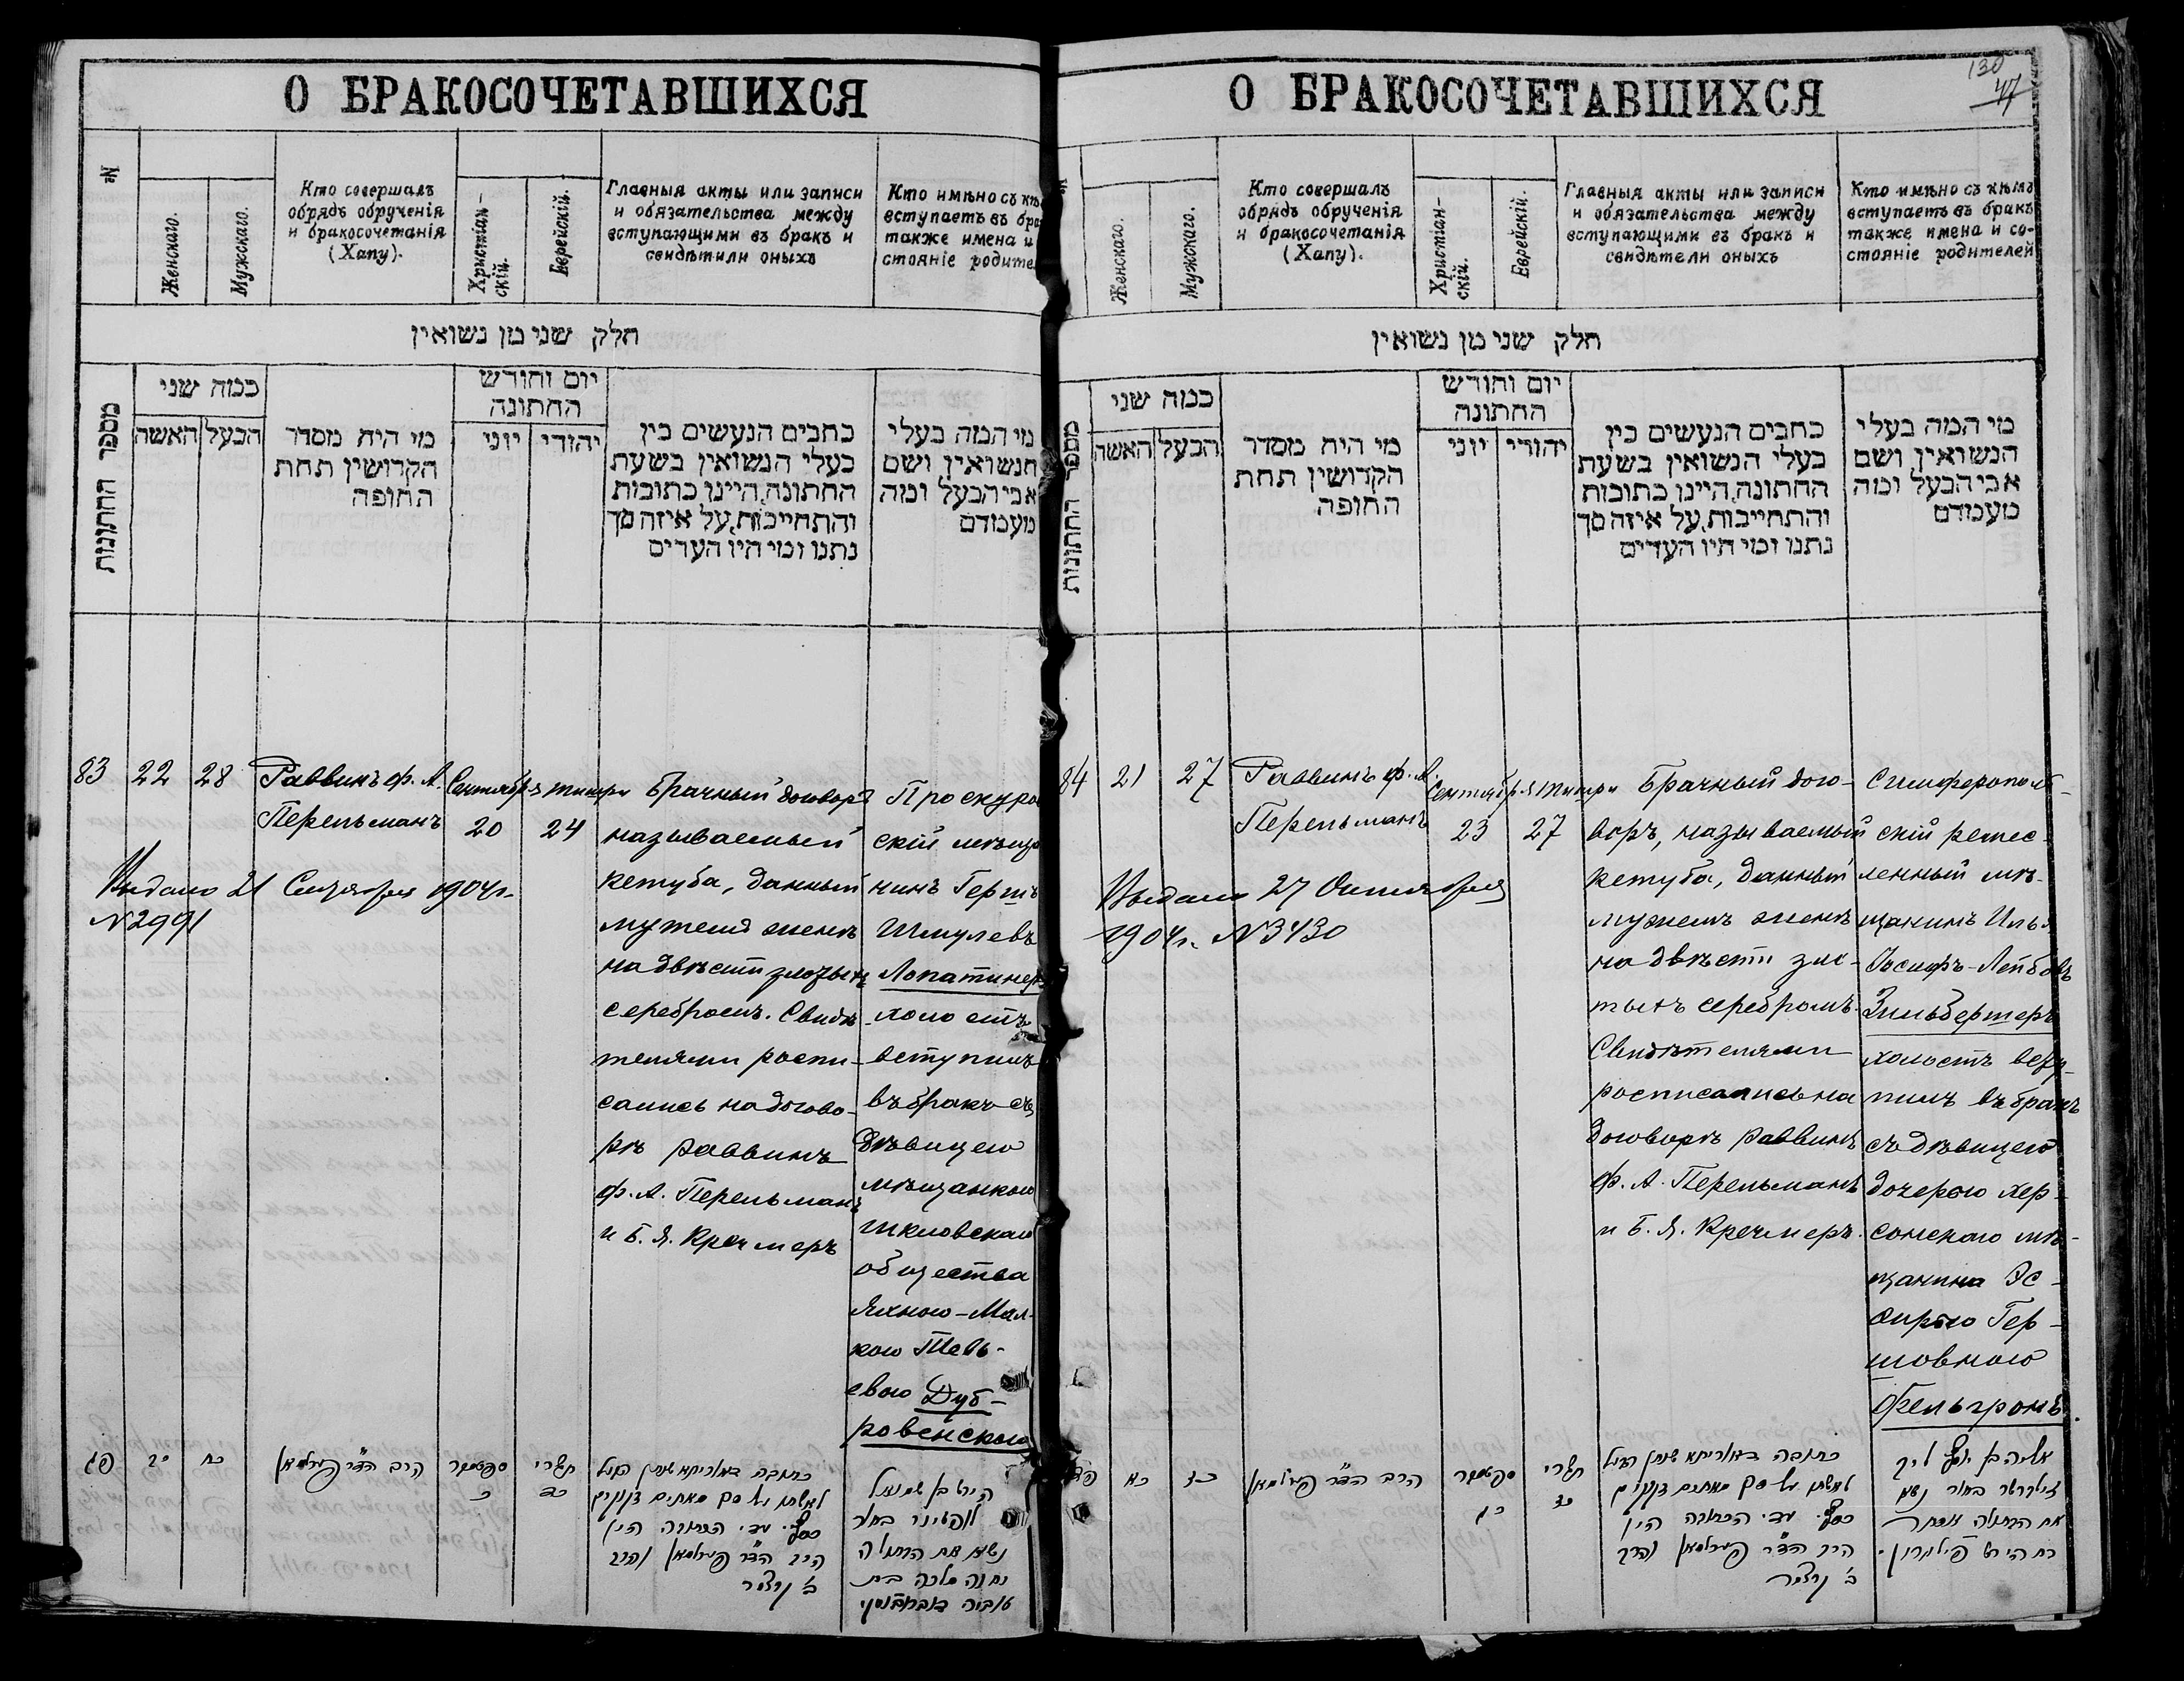 О БРАКОСОЧЕТАВШИХСЯ
№
Женскаго.
Мужскаго.
Кто совершалъ
обрядъ обрученія
и бракосочетанія
(Хапу).
Христіан-
скій.
Еврейскій.
Главныя акты или записи
и обязательства между
вступающими въ бракъ и
свидѣтили оныхъ
Кто имѣно съ
вступаетъ въ бра
также имена и
стояніе родите
חלק שני מן נשואין
מספר החתונות
כמה שני
האשה
הבעל
מי הית מסדר
הקדושין תחת
החופה
יום וחודש
החתונה
יוני
יהודי
כתבים הנעשים בין
בעלי הנשואין בשעת
החתונה, היינו כתובות
והתחייבות, על איזה סך
נתנו ומי היו העדים
מי המה בעלי
הנשואין ושם
אבי הבעל ומה
מעמדם
83
22
28
Раввинъ Ф. А.
Перельманъ
Сентябрь
20
Тишри
24
Брачный договоръ
называемый
кетуба, данный
мужемъ женѣ
на двѣсти злотыхъ
серебромъ. Свидѣ
телями роспи-
сались на догово-
рѣ раввинъ
Ф. А. Перельманъ
и Б. Я. Кречмеръ
Проскуро
скій мѣща
нинъ Гершъ
Шмулевъ
Лопатинеръ
холостъ
вступилъ
въ бракъ съ
дѣвицею
мѣщанкою
Шкловскаго
общества
Яхною-Мал-
кою Тевь-
евою Дуб-
ровенскою
Выдано 21 Сентября 1904 г.
№ 2991
פג
כב
כח
הרב הד"ר פערלמאן
ספטמבר
כ
תשרי
כד
כתובה דאורייתא שנתן הבעל
לאשתו על סך מאתים זקוקים
כסף. עדי הכתובה היו
הרב הד"ר פערלמאן והרב
ב' קרצמר
הירש בן שמואל
לופטינר בחור
נשא את הבתולה
יחנה מלכה בת
טוביה דוברובנסקי
О БРАКОСОЧЕТАВШИХСЯ
130
47
Женскаго.
Мужскаго.
Кто совершалъ
обрядъ обрученія
и бракосочетанія
(Хапу).
Христіан-
скій.
Еврейскій.
Главныя акты или записи
и обязательства между
вступающими въ бракъ и
свидѣтели оныхъ
Кто имѣно съ кѣмъ
вступаетъ въ бракъ
также имена и со-
стояніе родителей
חלק שני מן נשואין
מספר החתונות
כמה שני
האשה
הבעל
מי הית מסדר
הקדושין תחת
החופה
יום וחודש
החתונה
יוני
יהודי
כתבים הנעשים בין
בעלי הנשואין בשעת
החתונה, היינו כתובות
והתחייבות, על איזה סך
נתנו ומי היו העדים
מי המה בעלי
הנשואין ושם
אבי הבעל ומה
מעמדם
84
21
27
Раввинъ Ф. А.
Перельманъ
Сентября
23
Тишри
27
Брачный дого-
воръ, называемый
кетуба, данный
мужемъ женѣ
на двѣсти зло-
тыхъ серебромъ.
Свидѣтелями
росписались на
договорѣ раввинъ
Ф. А. Перельманъ
и Б. Я. Кречмеръ.
Симферополь-
скій ремес-
ленный мѣ-
щанинъ Илья
Іосифъ-Лейбовъ
Зильбертеръ
холостъ всту-
пилъ въ бракъ
съ дѣвицею
дочерью Хер-
сонскаго мѣ-
щанина Эс-
фирью Гер-
шовною
Фельгронъ.
Выдано 27 Октября
1904 г. № 3430
פד
כא
כז
הרב הד"ר פערלמאן
ספטמבר
כג
תשרי
כתובה דאורייתא שנתן הבעל
לאשתו על סך מאתים זקוקים
כסף. עדי הכתובה היו
הרב הד"ר פערלמאן והרב
ב' קרצמר
אליה בן יוסף ליב
זילברטר בחור נשא
את הבתולה אסתר
בת הירש פילגרון.